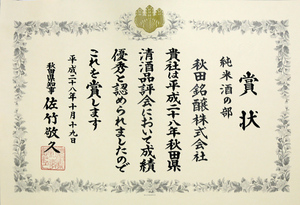 賞状
純米酒の部
秋田銘醸株式会社
貴社は平成二十八年秋田県
清酒品評会において成績
優秀と認められましたので
これを賞します
平成二十八年十月十九日
秋田県知事 佐竹敬久